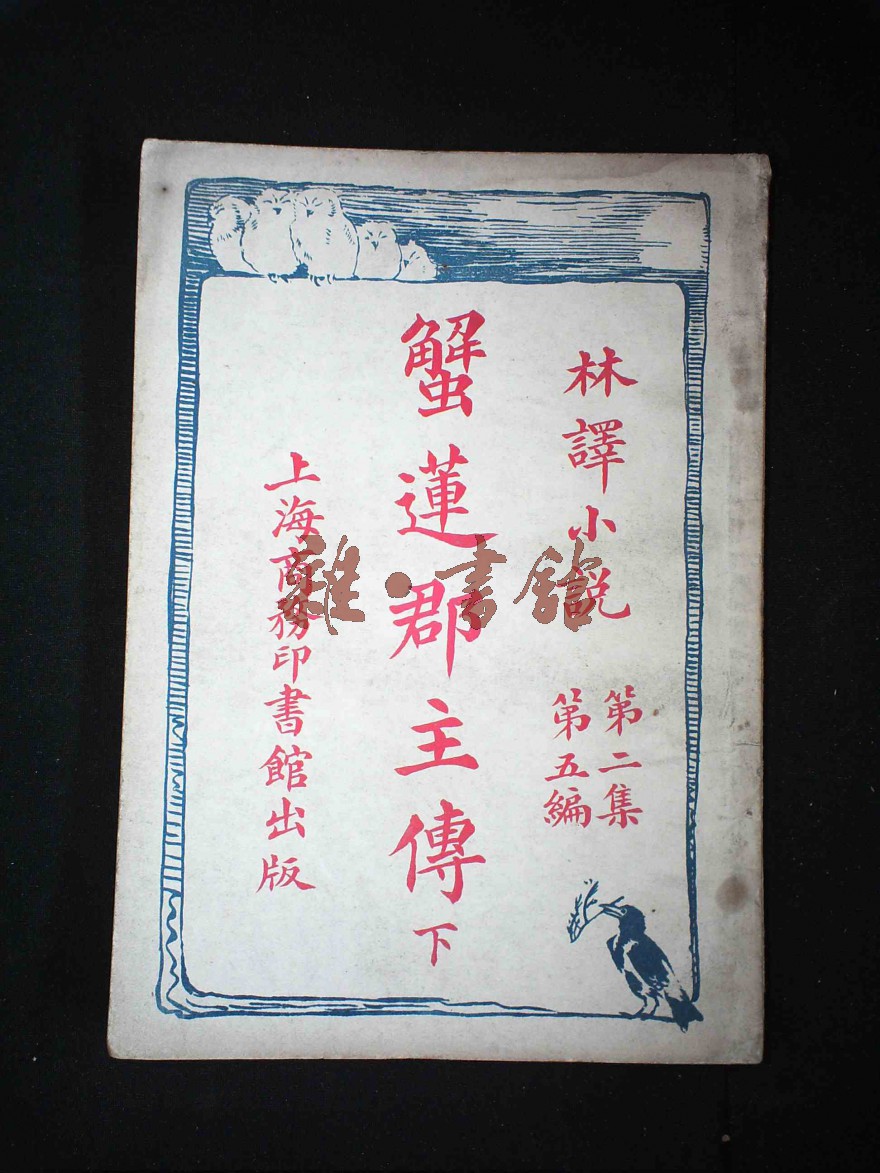 林譯小説
第二集
第五編
蟹蓮郡主傳 下
上海商務印書館出版
雜·書館